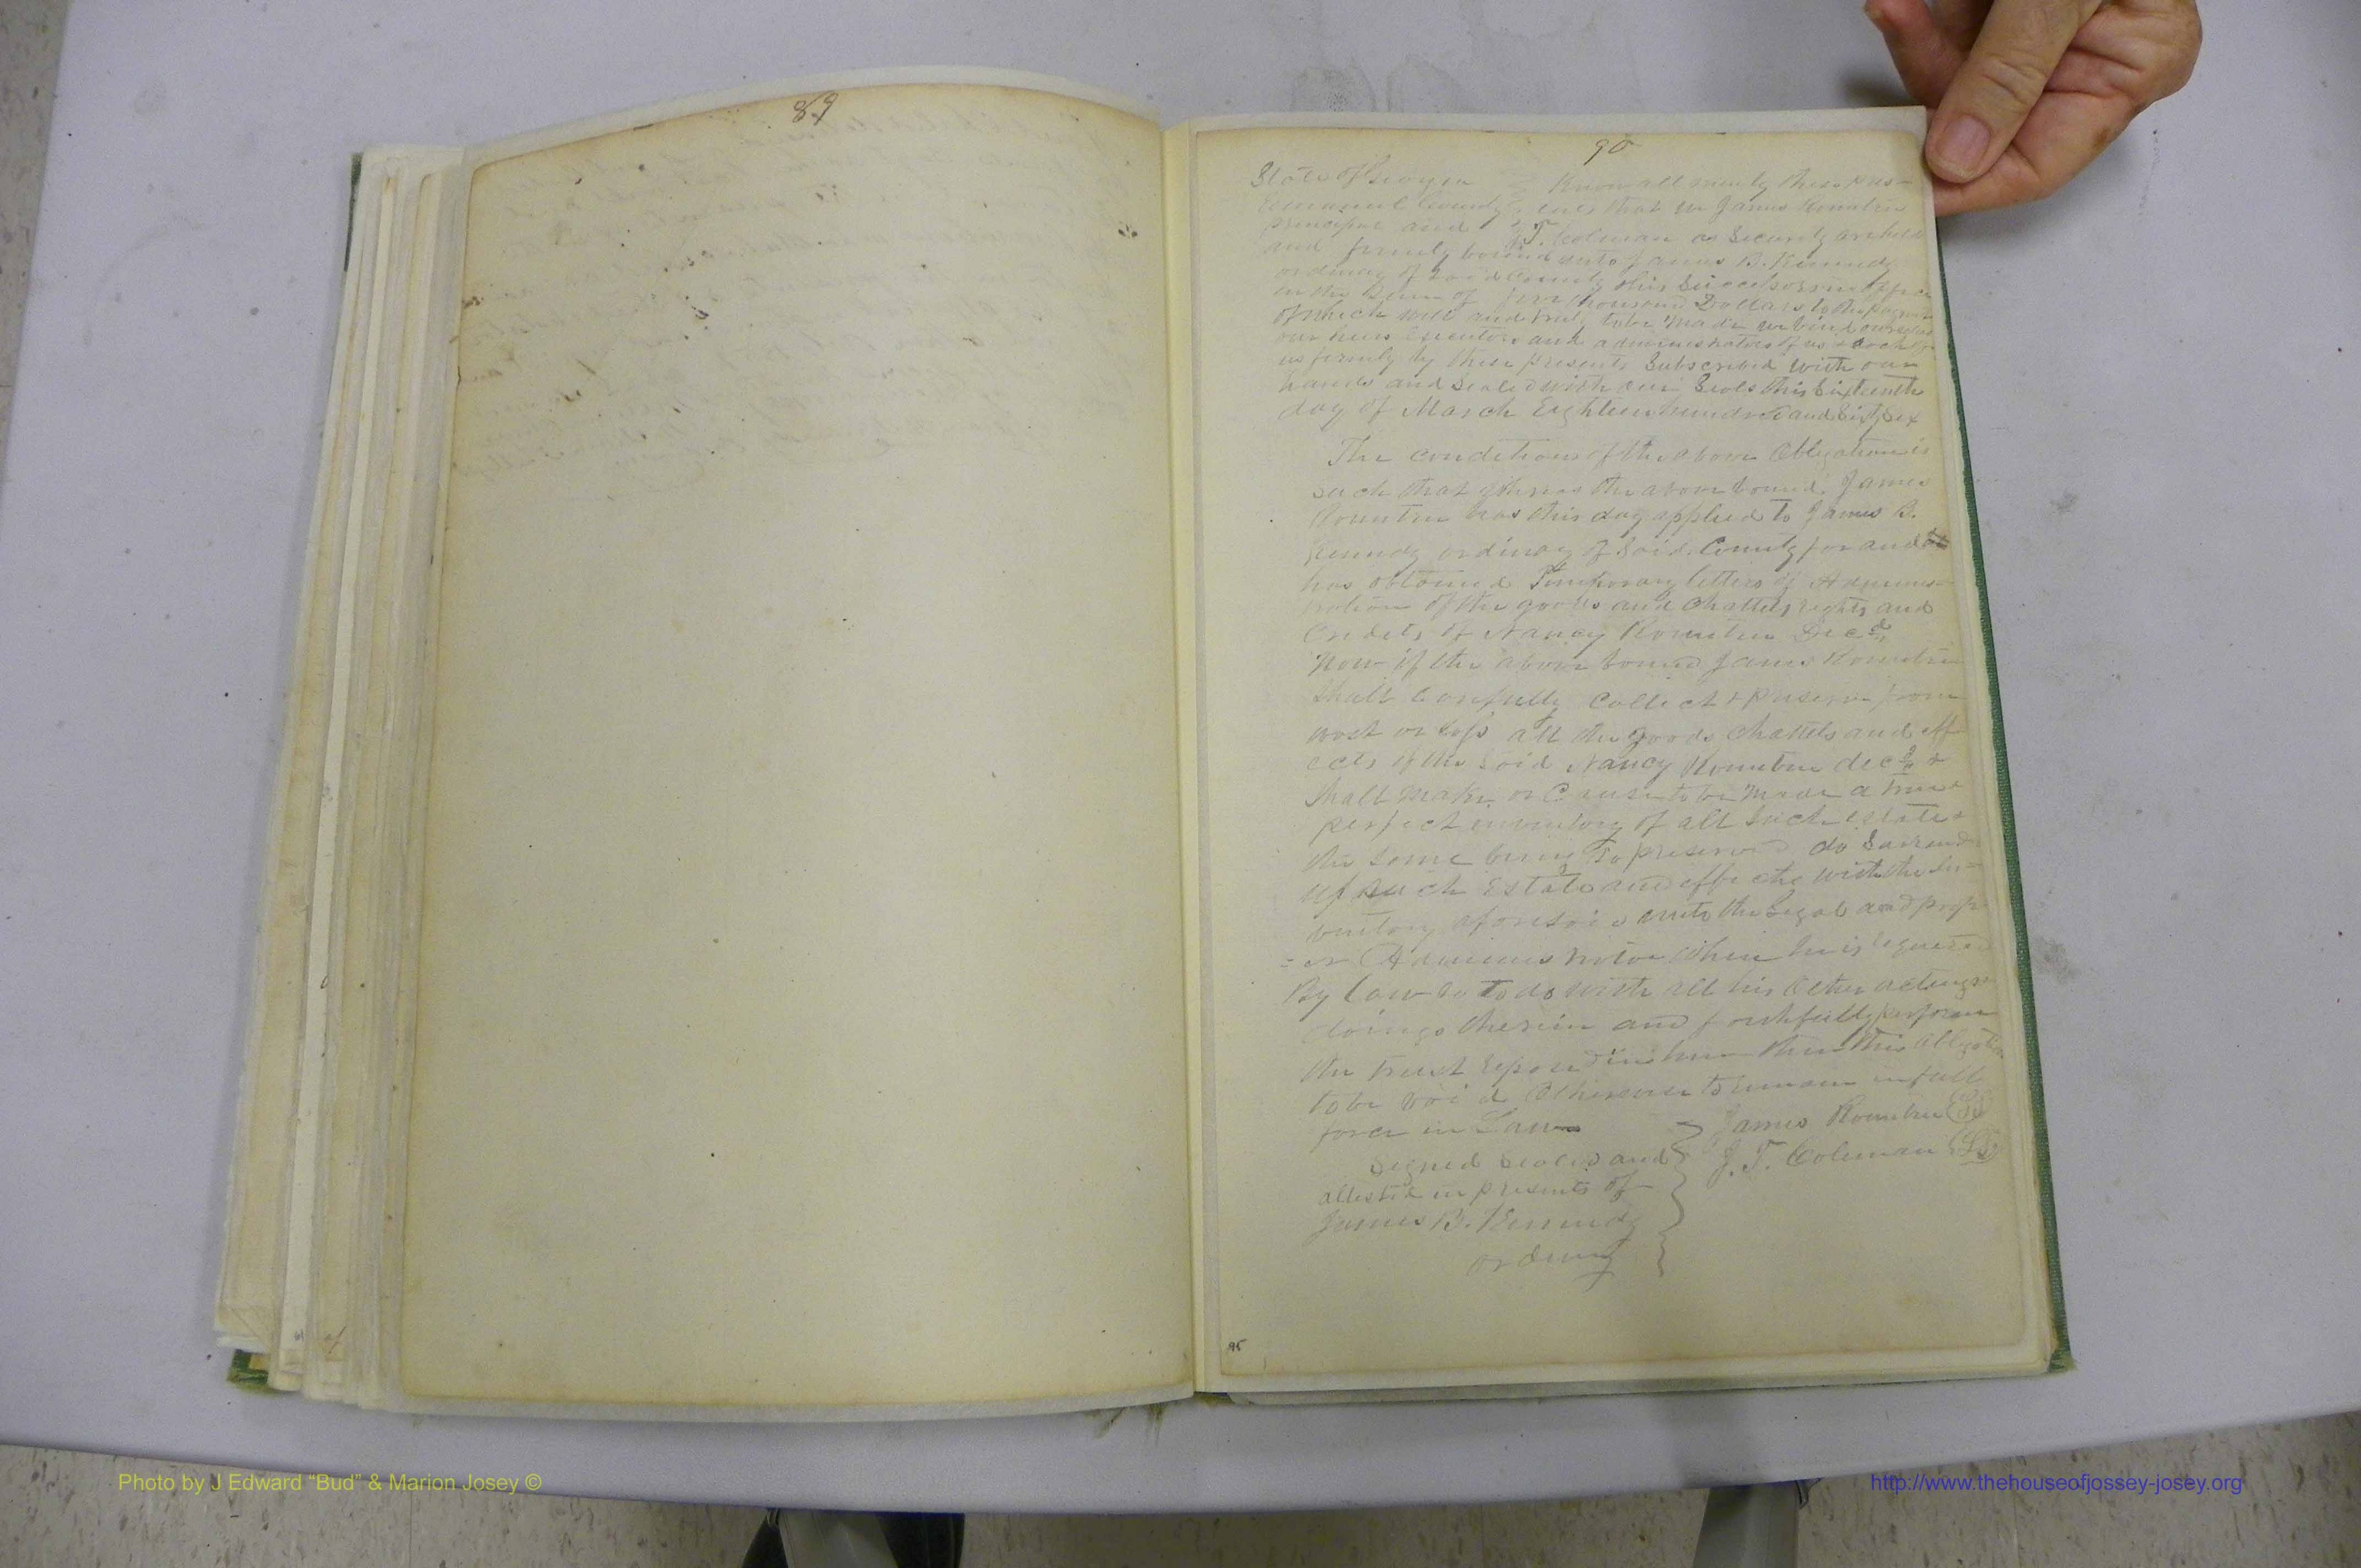 89
90
State of Georgia Know all men by these pres-
Emanuel County ents that we James Rountree
principal and J.T. Coleman as Security are held
and firmly bound unto James B. Kennedy
ordinary of said County & his Successors in office
in the Sum of four thousand Dollars to the payment
of which well and truly to be made we bind ourselves
our heirs Executors and administrators of us & each of
us firmly by these presents Subscribed with our
hands and Sealed with our Seals this Sixteenth
day of March Eighteen hundred and Sixty Six
The condition of the above Obligation is
such that whereas the above bound James
Rountree has this day applied to James B.
Kennedy ordinary of Said County for and
has obtained Temporary letters of Adminis-
tration of the goods and Chattels rights and
Credits of Nancy Rountree Decd
Now if the above bound James Rountree
Shall Carefully Collect & preserve from
wast or loss all the goods Chattels and eff
ects of the Said Nancy Rountree decd &
Shall make or Cause to be made a true &
perfect inventory of all Such estate &
the Same being So preserved do Surrend
up Such Estate and effects with the In-
ventory aforesaid unto the Legal and prop
= er Administrator When he is required
By law so to do with all his Other actings
doings therein and faithfully perform
the trust reposed in him then this obligation
to be void Otherwise to remain in full
force in Law
James Rountree LS
Signed Sealed and J. T. Coleman LS
attested in presents of
James B. Kennedy
ordinary
95
Photo by J Edward “Bud” & Marion Josey ©
http://www.thehouseofjossey-josey.org